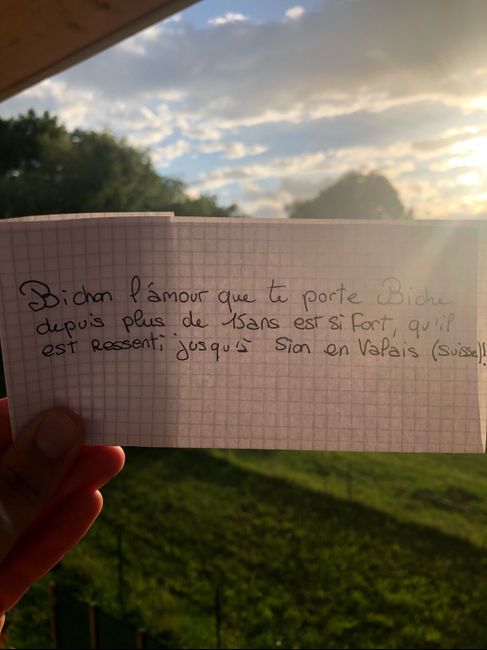 Bichon l'amour que te porte Biche
depuis plus de 15ans est si Fort, qu'il
est Ressenti jusqu'à Sion en Valais (Suisse)!